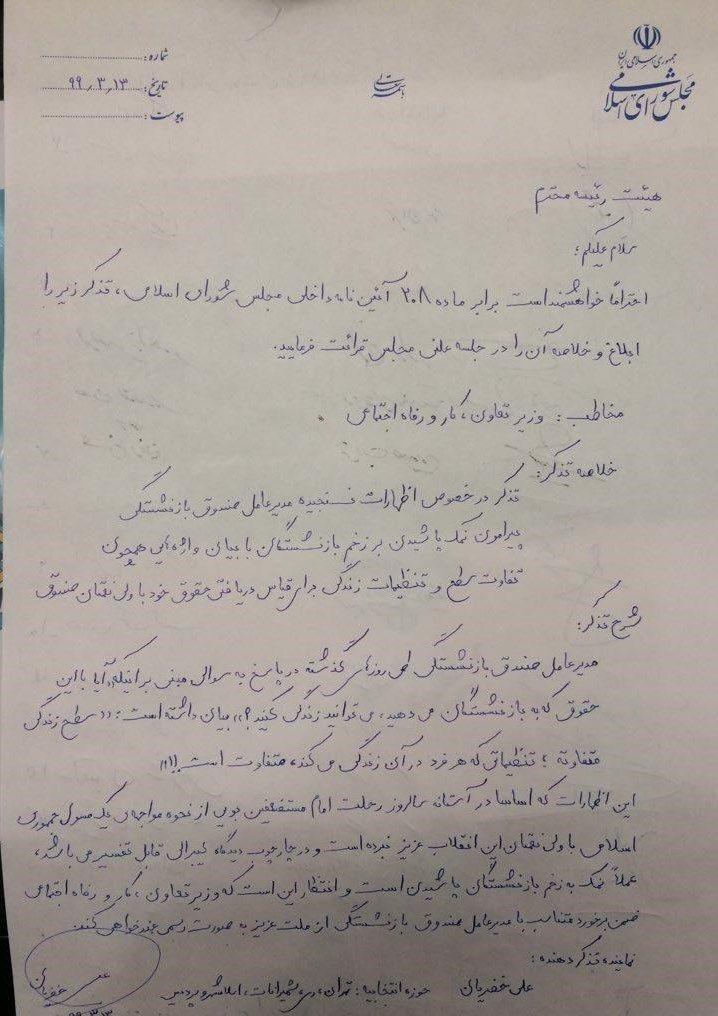 جمهوری اسلامی ایران
مجلس شورای اسلامی
باسمه تعالی
شماره:
تاریخ: ۹۹٫۳٫۱۳
پیوست:
هیئت رئیسه محترم
سلام علیکم؛
احتراماً خواهشمند است برابر ماده ۲۰۸ آئین نامه داخلی مجلس شورای اسلامی، تذکر زیر را
ابلاغ و خلاصه آن را در جلسه علنی مجلس قرائت فرمایید.
مخاطب: وزیر تعاون، کار و رفاه اجتماعی
خلاصه تذکر:
تذکر در خصوص اظهارات نسنجیده مدیرعامل صندوق بازنشستگی
پیرامون نمک پاشیدن بر زخم بازنشستگان با بیان واژه‌هایی همچون
تفاوت سطح و تنظیمات زندگی برای قیاس دریافتی حقوق خود با ولی نعمتان صندوق
شرح تذکر:
مدیرعامل صندوق بازنشستگی طی روزهای گذشته در پاسخ به سوالی مبنی بر اینکه «آیا با این
حقوق که به بازنشستگان می دهید، می توانید زندگی کنید؟» بیان داشته است: «سطح زندگی
متفاوته؛ تنظیماتی که هر فرد در آن زندگی می کند، متفاوت است!!»
این اظهارات که اساسا در آستانه سالروز رحلت امام مستضعفین بویی از نحوه مواجهه‌ی یک مسئول جمهوری
اسلامی با ولی نعمتان این انقلاب عزیز نبرده است و در چارچوب دیدگاه لیبرالی قابل تفسیر می باشد،
عملاً نمک به زخم بازنشستگان پاشیدن است و انتظار این است که وزیر تعاون، کار و رفاه اجتماعی
ضمن برخورد متناسب با مدیرعامل صندوق بازنشستگی از ملت عزیز به صورت رسمی عذرخواهی کند.
نماینده تذکر دهنده:
علی خضریان حوزه انتخابیه: تهران، ری، شمیرانات، اسلامشهر و پردیس
علی خضریان
۹۹٫۳٫۱۳